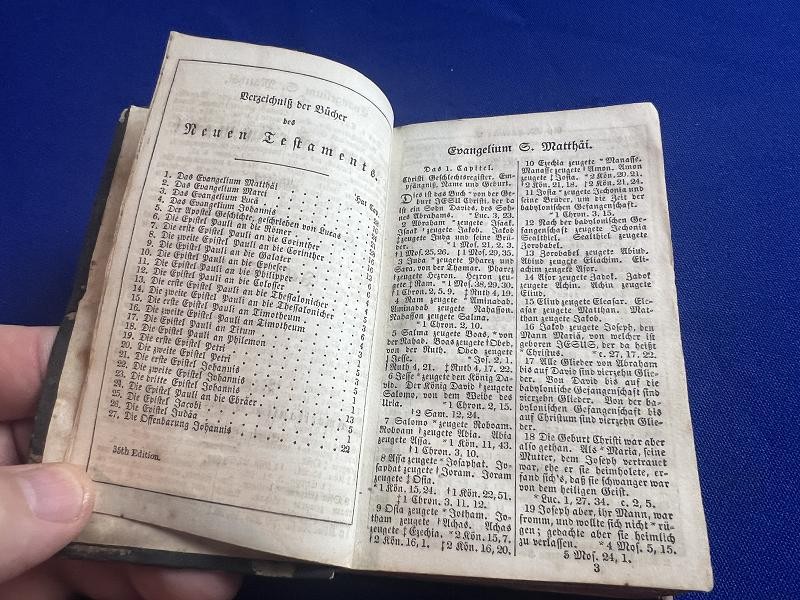 Verzeichniß der Bücher
des
Neuen Testaments.
Hat Cap.
1. Das Evangelium Matthäi
2. Das Evangelium Marci
3. Das Evangelium Lucä
4. Das Evangelium Johannis
5. Der Apostel Geschichte, geschrieben von Lucas
6. Die Epistel Pauli an die Römer
7. Die erste Epistel Pauli an die Corinther
8. Die zweite Epistel Pauli an die Corinther
9. Die Epistel Pauli an die Galater
10. Die Epistel Pauli an die Epheser
11. Die Epistel Pauli an die Philipper
12. Die Epistel Pauli an die Colosser
13. Die erste Epistel Pauli an die Thessalonicher
14. Die zweite Epistel Pauli an die Thessalonicher
15. Die erste Epistel Pauli an Timotheum
16. Die zweite Epistel Pauli an Timotheum
17. Die Epistel Pauli an Titum
18. Die Epistel Pauli an Philemon
19. Die erste Epistel Petri
20. Die zweite Epistel Petri
21. Die erste Epistel Johannis
22. Die zweite Epistel Johannis
23. Die dritte Epistel Johannis
24. Die Epistel Pauli an die Ebräer
25. Die Epistel Jacobi
26. Die Epistel Judä
27. Die Offenbarung Johannis 22
35th Edition.
Evangelium S. Matthäi.
Das 1. Capitel.
Christi Geschlechtsregister, Em-
pfängniß, Name und Geburt.
Dis ist das Buch *von der Ge-
burt JESU Christi, der da
ist ein Sohn Davids, des Soh-
nes Abrahams. *Luc. 3, 23.
2 Abraham *zeugete Isaak.
Isaak †zeugete Jakob. Jakob
‡zeugete Juda und seine Brü-
der. *1 Mos. 21, 2. 3.
†1 Mos. 25, 26. ‡1 Mos. 29, 35.
3 Juda *zeugete Pharez und
Sara, von der Thamar. Pharez
†zeugete Hezron. Hezron zeu-
gete ‡Ram. *1 Mos. 38, 29. 30.
†1 Chron. 2, 5. 9. ‡Ruth 4, 19.
4 Ram zeugete *Aminadab.
Aminadab zeugete Nahasson.
Nahasson zeugete Salma.
*1 Chron. 2, 10.
5 Salma zeugete Boas, *von
der Rahab. Boas zeugete †Obed,
von der Ruth. Obed zeugete
‡Jesse. *Jos. 2, 1.
†Ruth 4, 21. ‡Ruth 4, 17. 22.
6 Jesse *zeugete den König Da-
vid. Der König David zeugete
Salomo, von dem Weibe des
Uria. *1 Chron. 2, 15.
†2 Sam. 12, 24.
7 Salomo *zeugete Roboam.
Roboam †zeugete Abia. Abia
zeugete Assa. *1 Kön. 11, 43.
†1 Chron. 3, 10.
8 Assa zeugete *Josaphat. Jo-
saphat zeugete †Joram. Joram
zeugete ‡Osia.
*1 Kön. 15, 24. †1 Kön. 22, 51.
‡1 Chron. 3, 11. 12.
9 Osia zeugete *Jotham. Jo-
tham zeugete †Achas. Achas
zeugete ‡Ezechia. *2 Kön. 15, 7.
†2 Kön. 16, 1. ‡2 Kön. 16, 20.
10 Ezechia zeugete *Manasse.
Manasse zeugete †Amon. Amon
zeugete ‡Josia. *2 Kön. 20, 21.
†2 Kön. 21, 18. ‡2 Kön. 21, 24.
11 Josia *zeugete Jechonia und
seine Brüder, um die Zeit der
babylonischen Gefangenschaft.
*1 Chron. 3, 15.
12 Nach der babylonischen Ge-
fangenschaft zeugete Jechonia
Sealthiel. Sealthiel zeugete
Zorobabel.
13 Zorobabel zeugete Abiud.
Abiud zeugete Eliachim. Eli-
achim zeugete Asor.
14 Asor zeugete Zadok. Zadok
zeugete Achin. Achin zeugete
Eliud.
15 Eliud zeugete Eleasar. Ele-
asar zeugete Matthan. Mat-
than zeugete Jakob.
16 Jakob zeugete Joseph, den
Mann Mariä, von welcher ist
geboren JESUS, der da heißt
*Christus. *c. 27, 17. 22.
17 Alle Glieder von Abraham
bis auf David sind vierzehn Glie-
der. Von David bis auf die
babylonische Gefangenschaft sind
vierzehn Glieder. Von der ba-
bylonischen Gefangenschaft bis
auf Christum sind vierzehn Glie-
der.
18 Die Geburt Christi war aber
also gethan. Als *Maria, seine
Mutter, dem Joseph vertrauet
war, ehe er sie heimholete, er-
fand sichs, daß sie schwanger war
von dem heiligen Geist.
*Luc. 1, 27. 34. c. 2, 5.
19 Joseph aber, ihr Mann, war
fromm, und wollte sich nicht *rü-
gen; gedachte aber sie heimlich
zu verlassen. *4 Mos. 5, 15.
5 Mos. 24, 1.
3